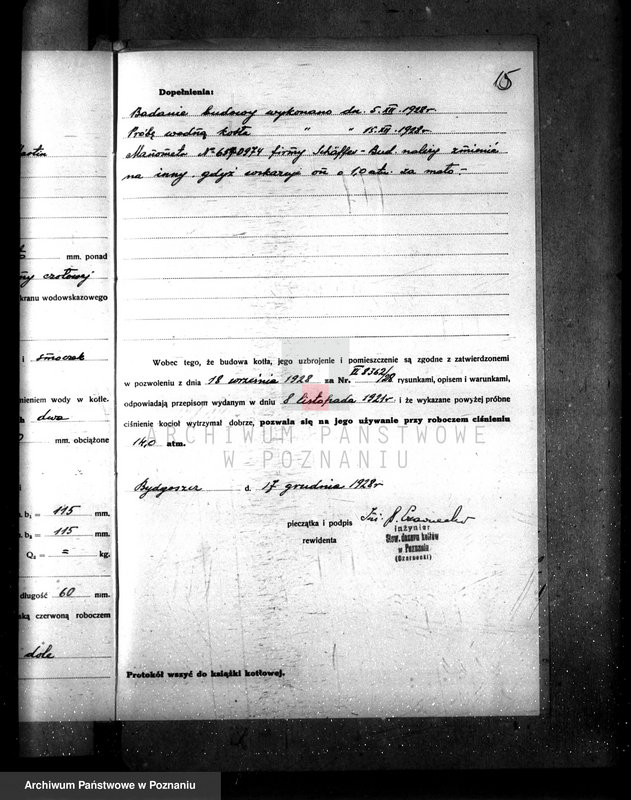 15
Dopełnienia:
Badanie budowy wykonano dn. 5.XII.1928r.
Próbę wodną kotła " " 15.XII.1928r.
Manometr No firmy Schäffer-Bud. należy zmienić
na inny gdyż wskazuje on o 1,0 atm. za mało.-
mm. ponad
czołowej
kranu wodowskazowego
i smoczek
Wobec tego, że budowa kotła, jego uzbrojenie i pomieszczenie są zgodne z zatwierdzonemi
w pozwoleniu z dnia 18 września 1928 za Nr. II 8362/28 rysunkami, opisem i warunkami,
odpowiadają przepisom wydanym w dniu 8 listopada 1921r i że wykazane powyżej próbne
ciśnienie kocioł wytrzymał dobrze, pozwala się na jego używanie przy roboczem ciśnieniu
14,0 atm.
nieniem wody w kotle.
dwa
mm. obciążone
ARCHIWUM PAŃSTWOWE
W POZNANIU
Bydgoszcz d. 17 grudnia 1928r
pieczątka i podpis
rewidenta
Inż.
inżynier
Stow. dozoru kotłów
w Poznaniu
(Czarnecki)
b₁ = 115 mm.
b₂ = 115 mm.
Q₂ = = kg.
długość 60 mm.
ską czerwoną roboczem
dole
Protokół wszyć do książki kotłowej.
Archiwum Państwowe w Poznaniu